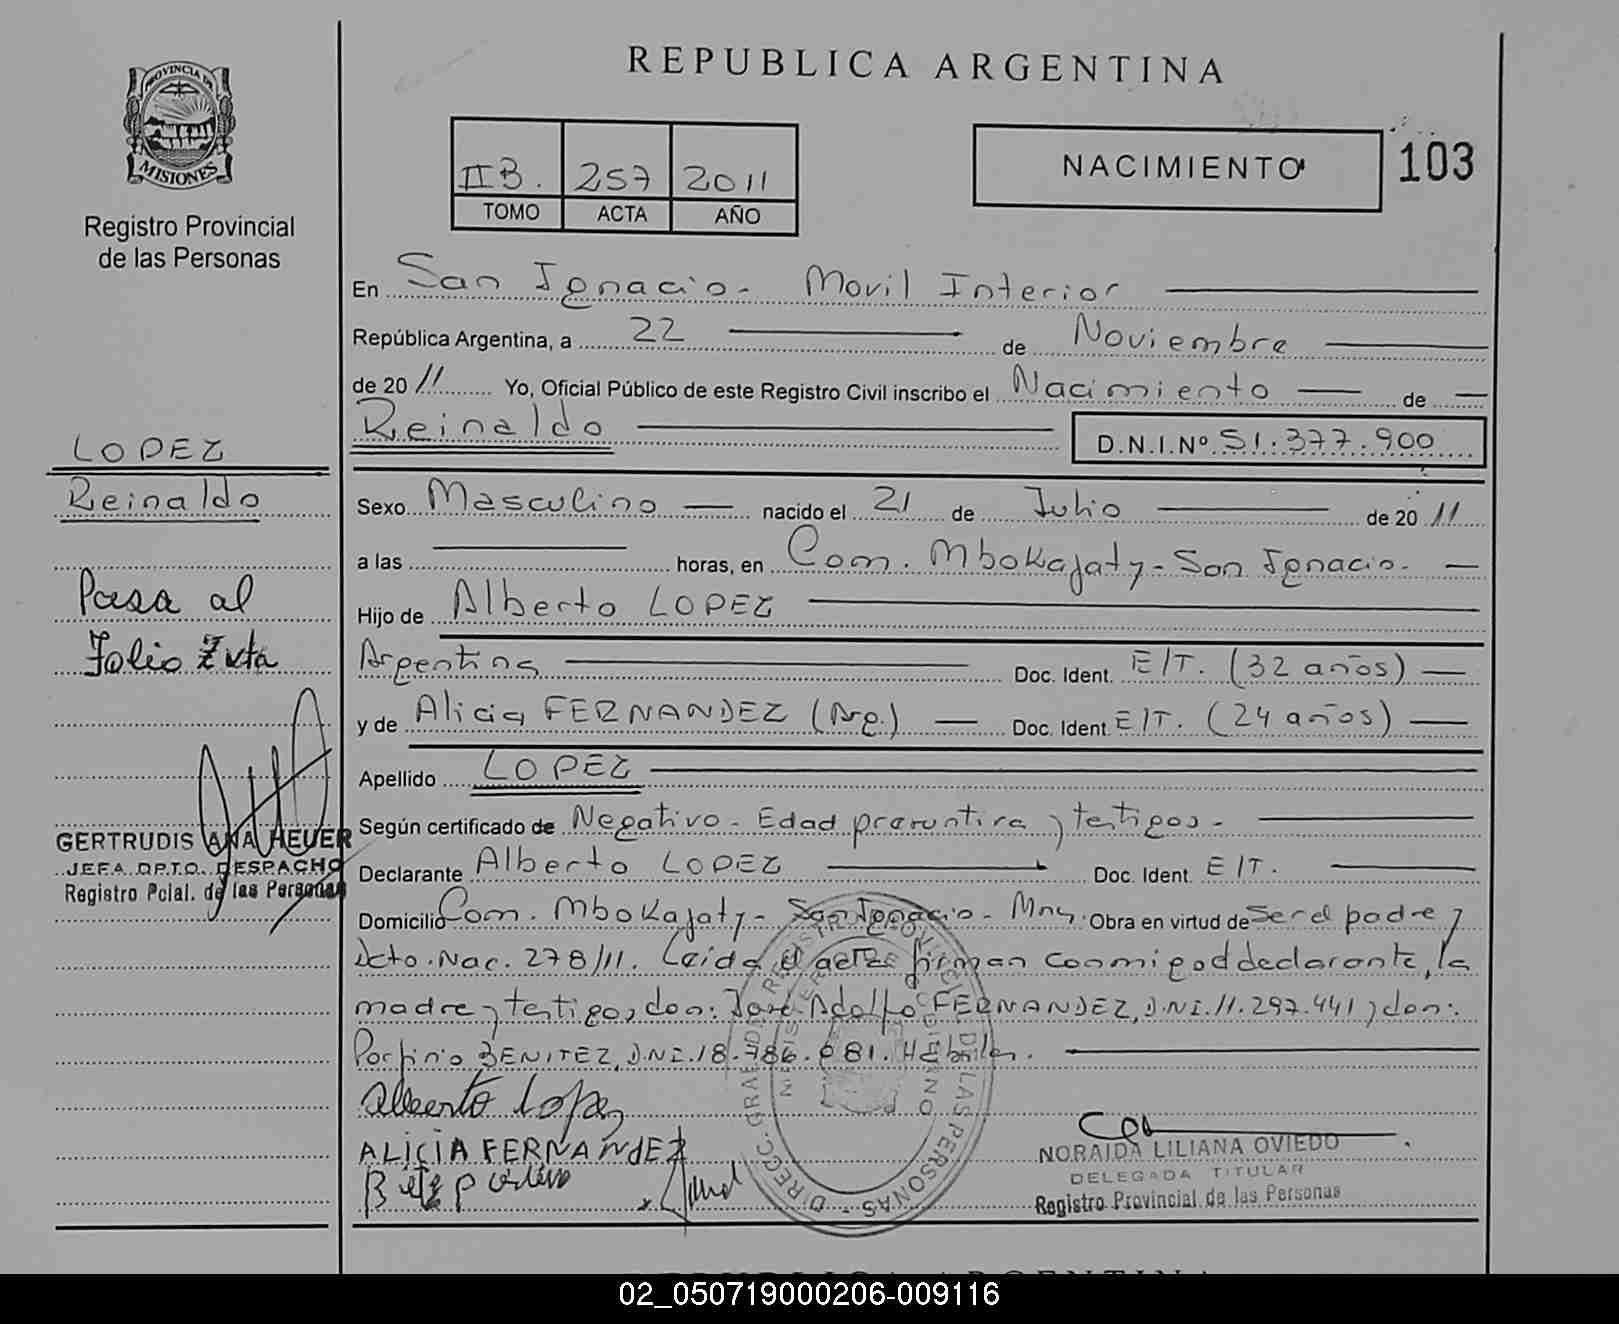 REPUBLICA ARGENTINA
PROVINCIA DE
MISIONES
Registro Provincial
de las Personas
IIB. 257 2011
TOMO ACTA AÑO
NACIMIENTO
103
En San Ignacio - Movil Interior
República Argentina, a 22 de Noviembre
de 2011 Yo, Oficial Público de este Registro Civil inscribo el Nacimiento de
Reinaldo D.N.I.Nº 51.377.900
LOPEZ
Reinaldo
Pasa al
Folio
GERTRUDIS ANA HEUER
JEFA DPTO. DESPACHO
Registro Pcial. de las Personas
Sexo Masculino nacido el 21 de Julio de 2011
a las horas, en Com. Mbokajaty - San Ignacio.
Hijo de Alberto LOPEZ
Argentina Doc. Ident. E/T. (32 años)
y de Alicia FERNANDEZ (Arg.) Doc. Ident. E/T. (24 años)
Apellido LOPEZ
Según certificado de Negativo - Edad presuntiva y testigos -
Declarante Alberto LOPEZ Doc. Ident. E/T.
Domicilio Com. Mbokajaty - San Ignacio - Mnes. Obra en virtud de ser el padre y
Dcto. Nac. 278/11. Leída el acta firman conmigo el declarante, la
madre y testigos, don: José Adolfo FERNANDEZ, D.N.I. 11.297.441 y don:
Porfirio BENITEZ, D.N.I. 18.786.081. Hábiles.
Alberto Lopez
ALICIA FERNANDEZ
NORAIDA LILIANA OVIEDO
DELEGADA TITULAR
Registro Provincial de las Personas
02_050719000206-009116